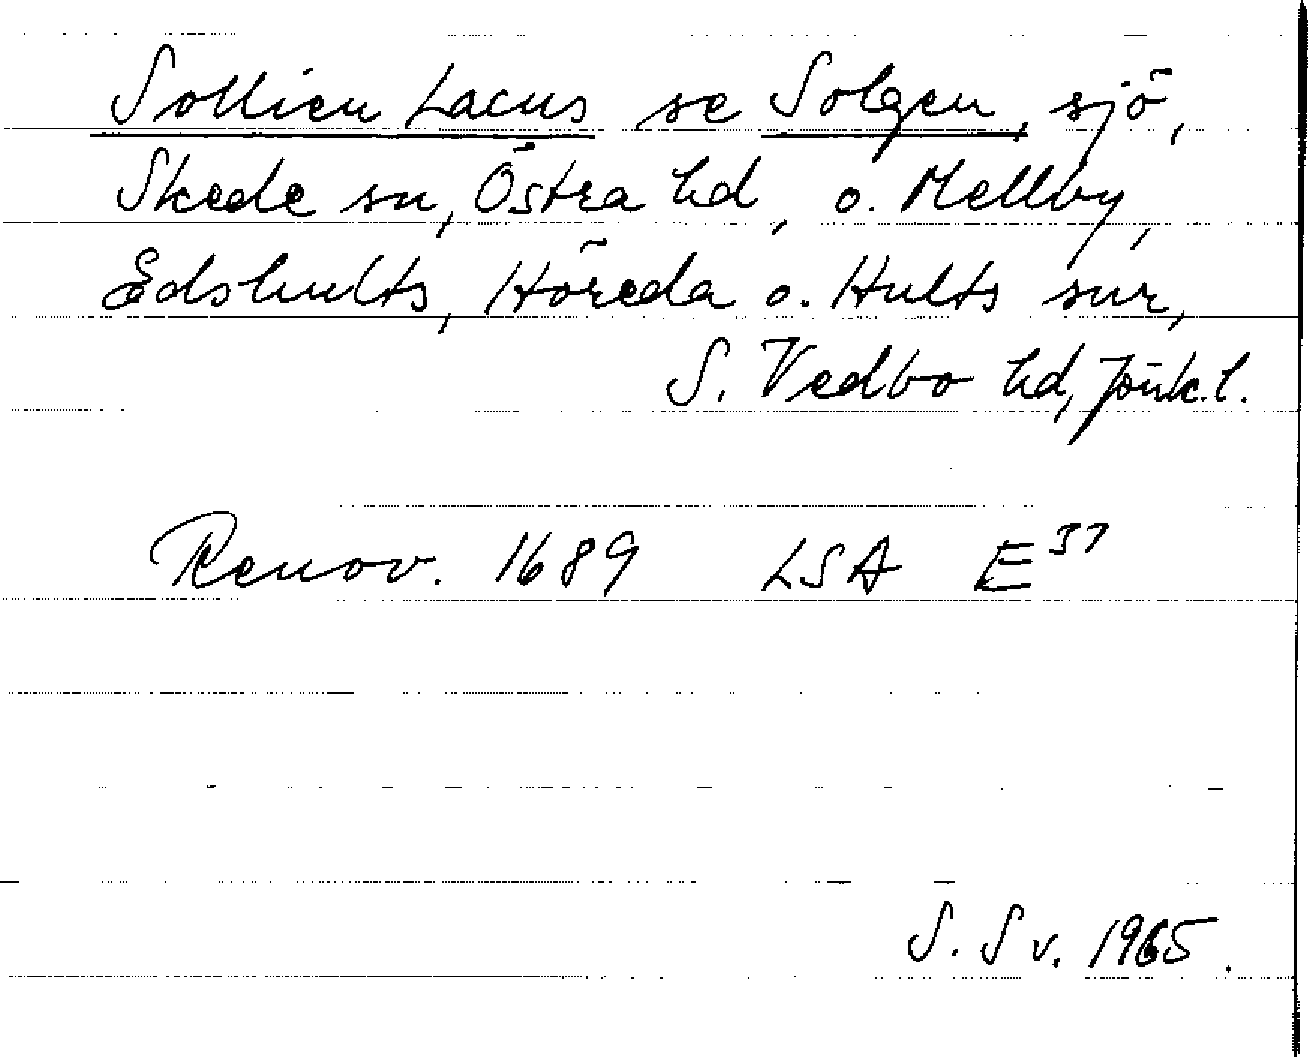 Sollien Lacus se Solgen, sjö,
Skede sn, Östra hd, o. Mellby,
Edshults, Höreda o. Hults snr,
S. Vedbo hd, Jönk. l.
Renov. 1689 LSA E37
S. Sv. 1965.